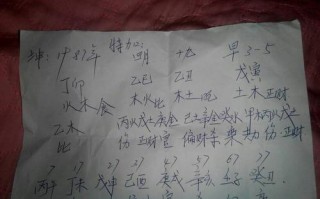 坤：1987年 特加：四月 十九 早3-5
丁卯 乙巳 乙丑 戊寅
火木食 木火比 木土 土木正财
乙木 丙火戊土庚金 己土辛金癸水 甲木丙火戊土
比 伤 正财官 偏财杀枭 劫 伤 正财
7 17 27 37 47 57 67 77
丙午 丁未 戊申 己酉 庚戌 辛亥 壬子 癸丑